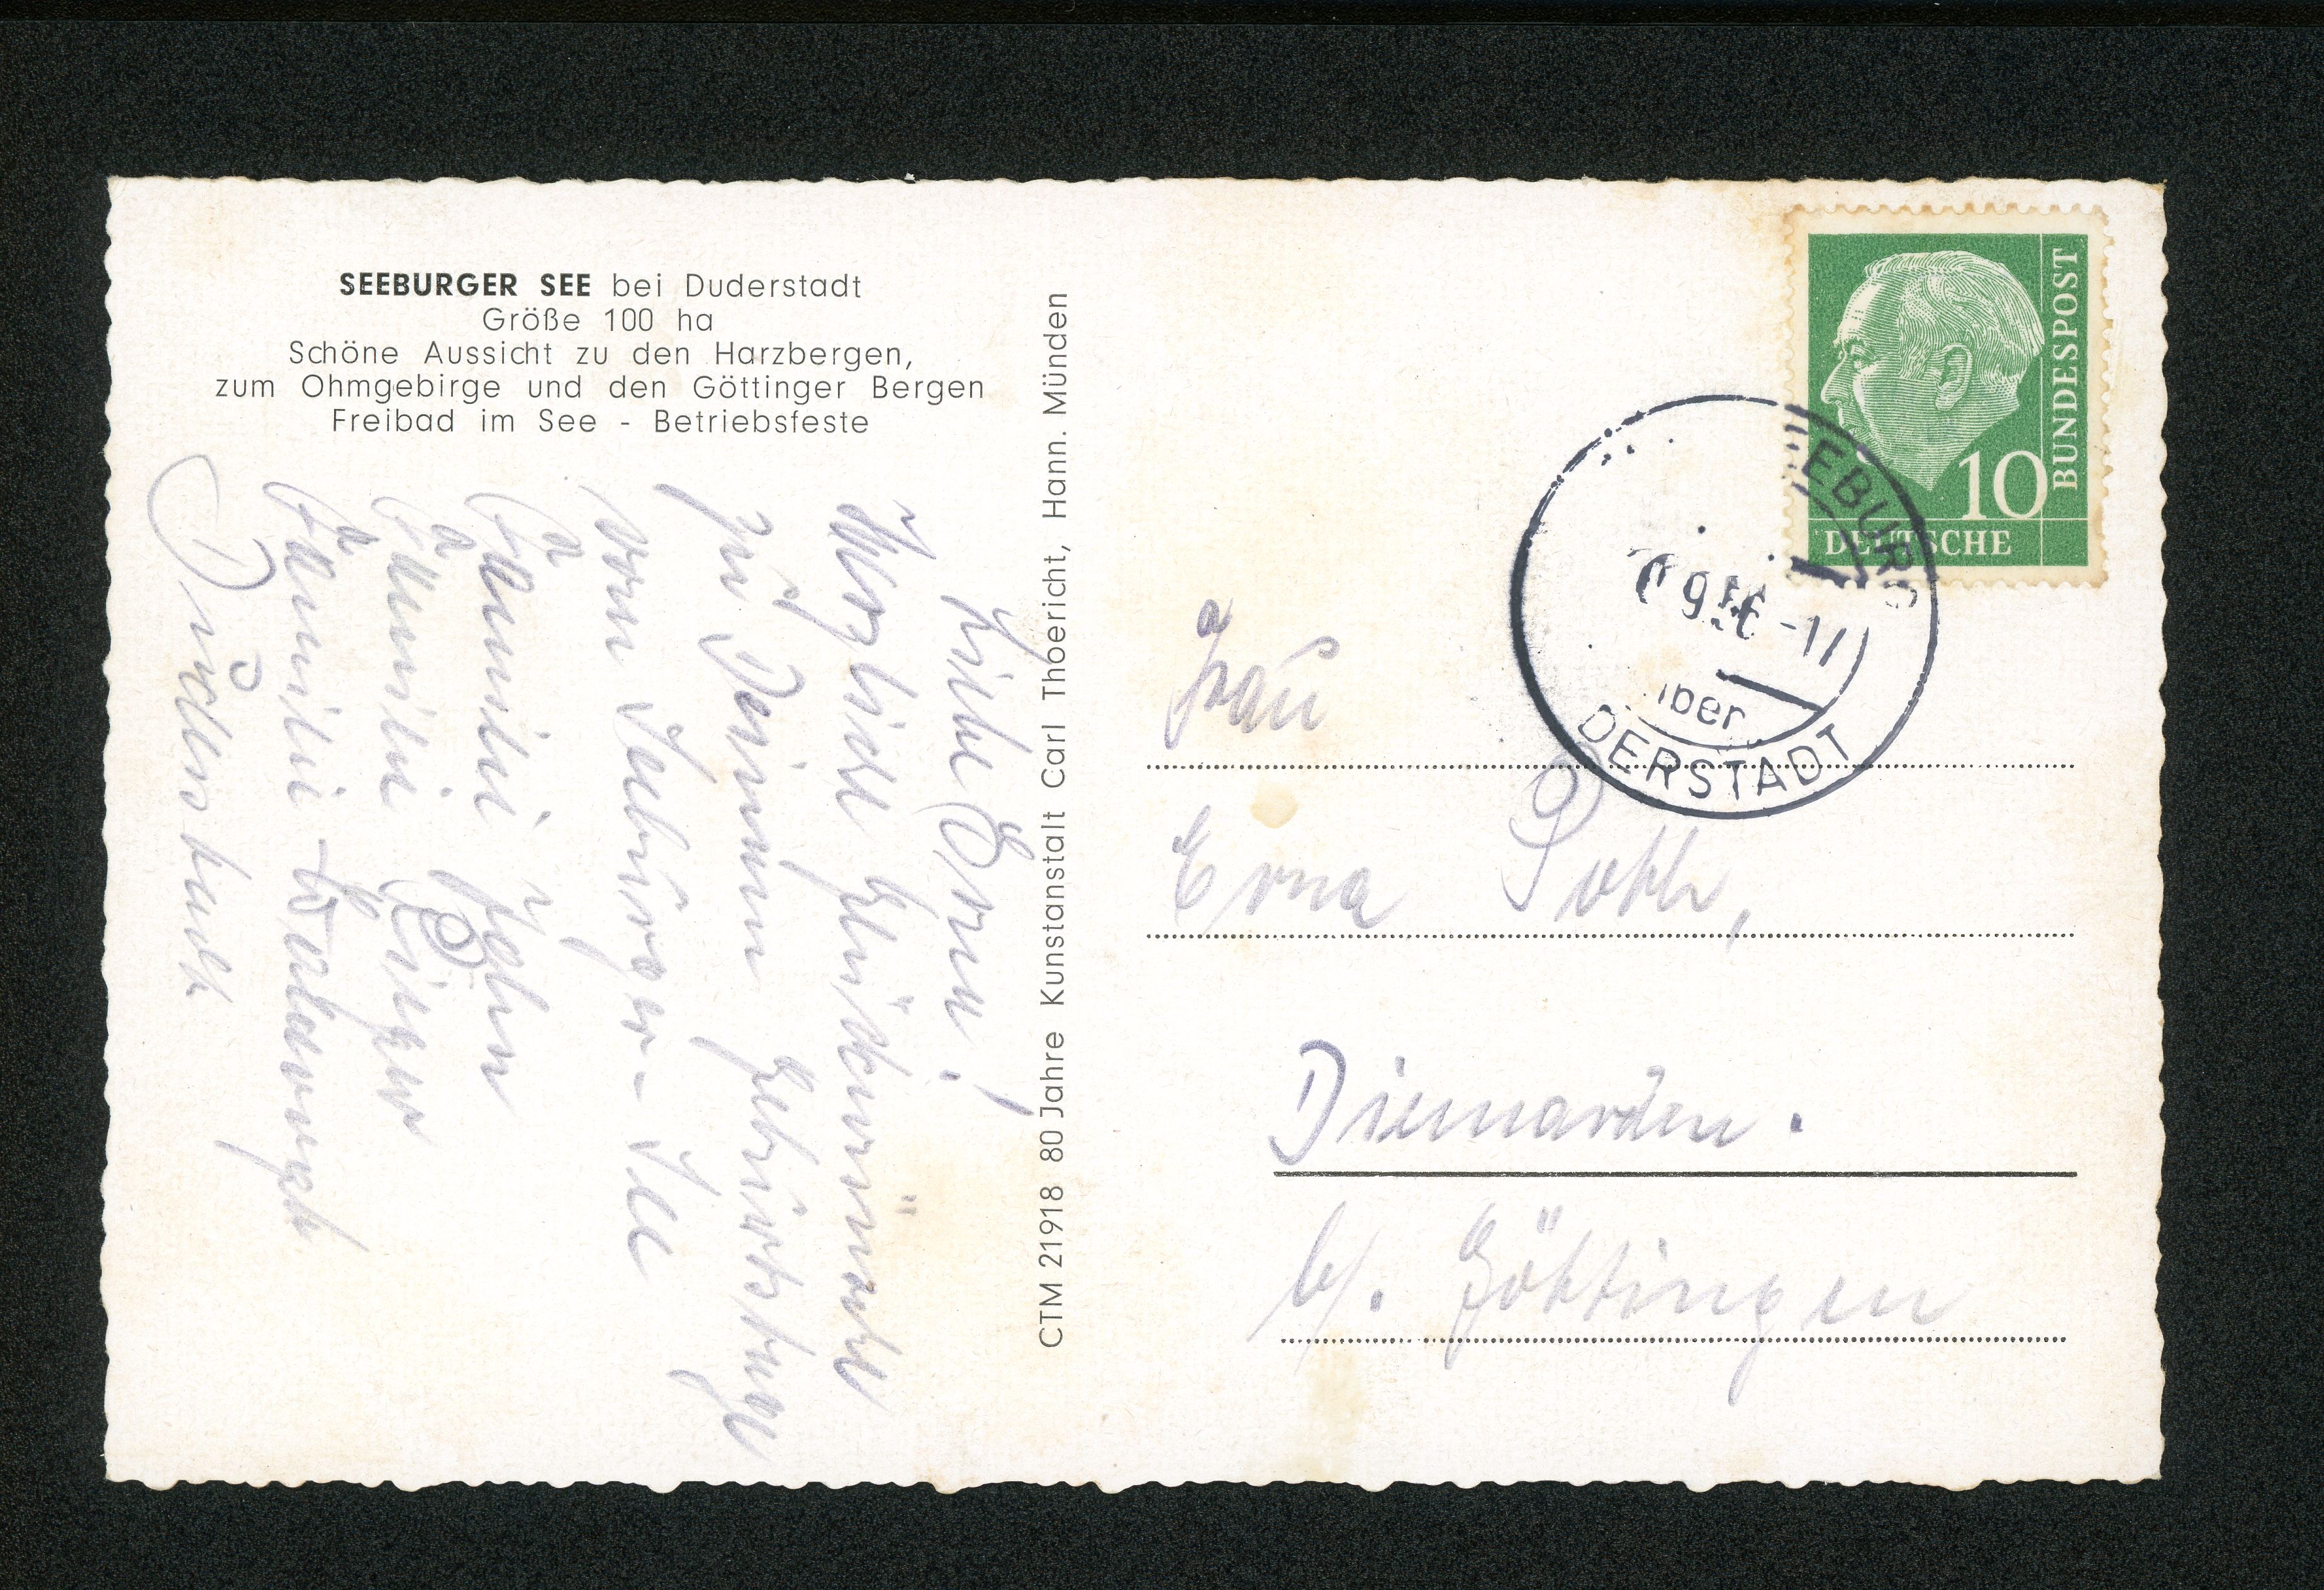 SEEBURGER SEE bei Duderstadt
Größe 100 ha
Schöne Aussicht zu den Harzbergen,
zum Ohmgebirge und den Göttinger Bergen
Freibad im See - Betriebsfeste
Liebe Erna!
Herzliche Glückwünsche
zu Deinem Geburtstage
vom Seeburger-See
Familie
Familie
Familie
CTM 21918 80 Jahre Kunstanstalt Carl Thoericht, Hann. Münden
10
BUNDESPOST
DEUTSCHE
EEBURG
DERSTADT
Frau
Erna Pohl,
Diemarden.
b/. Göttingen